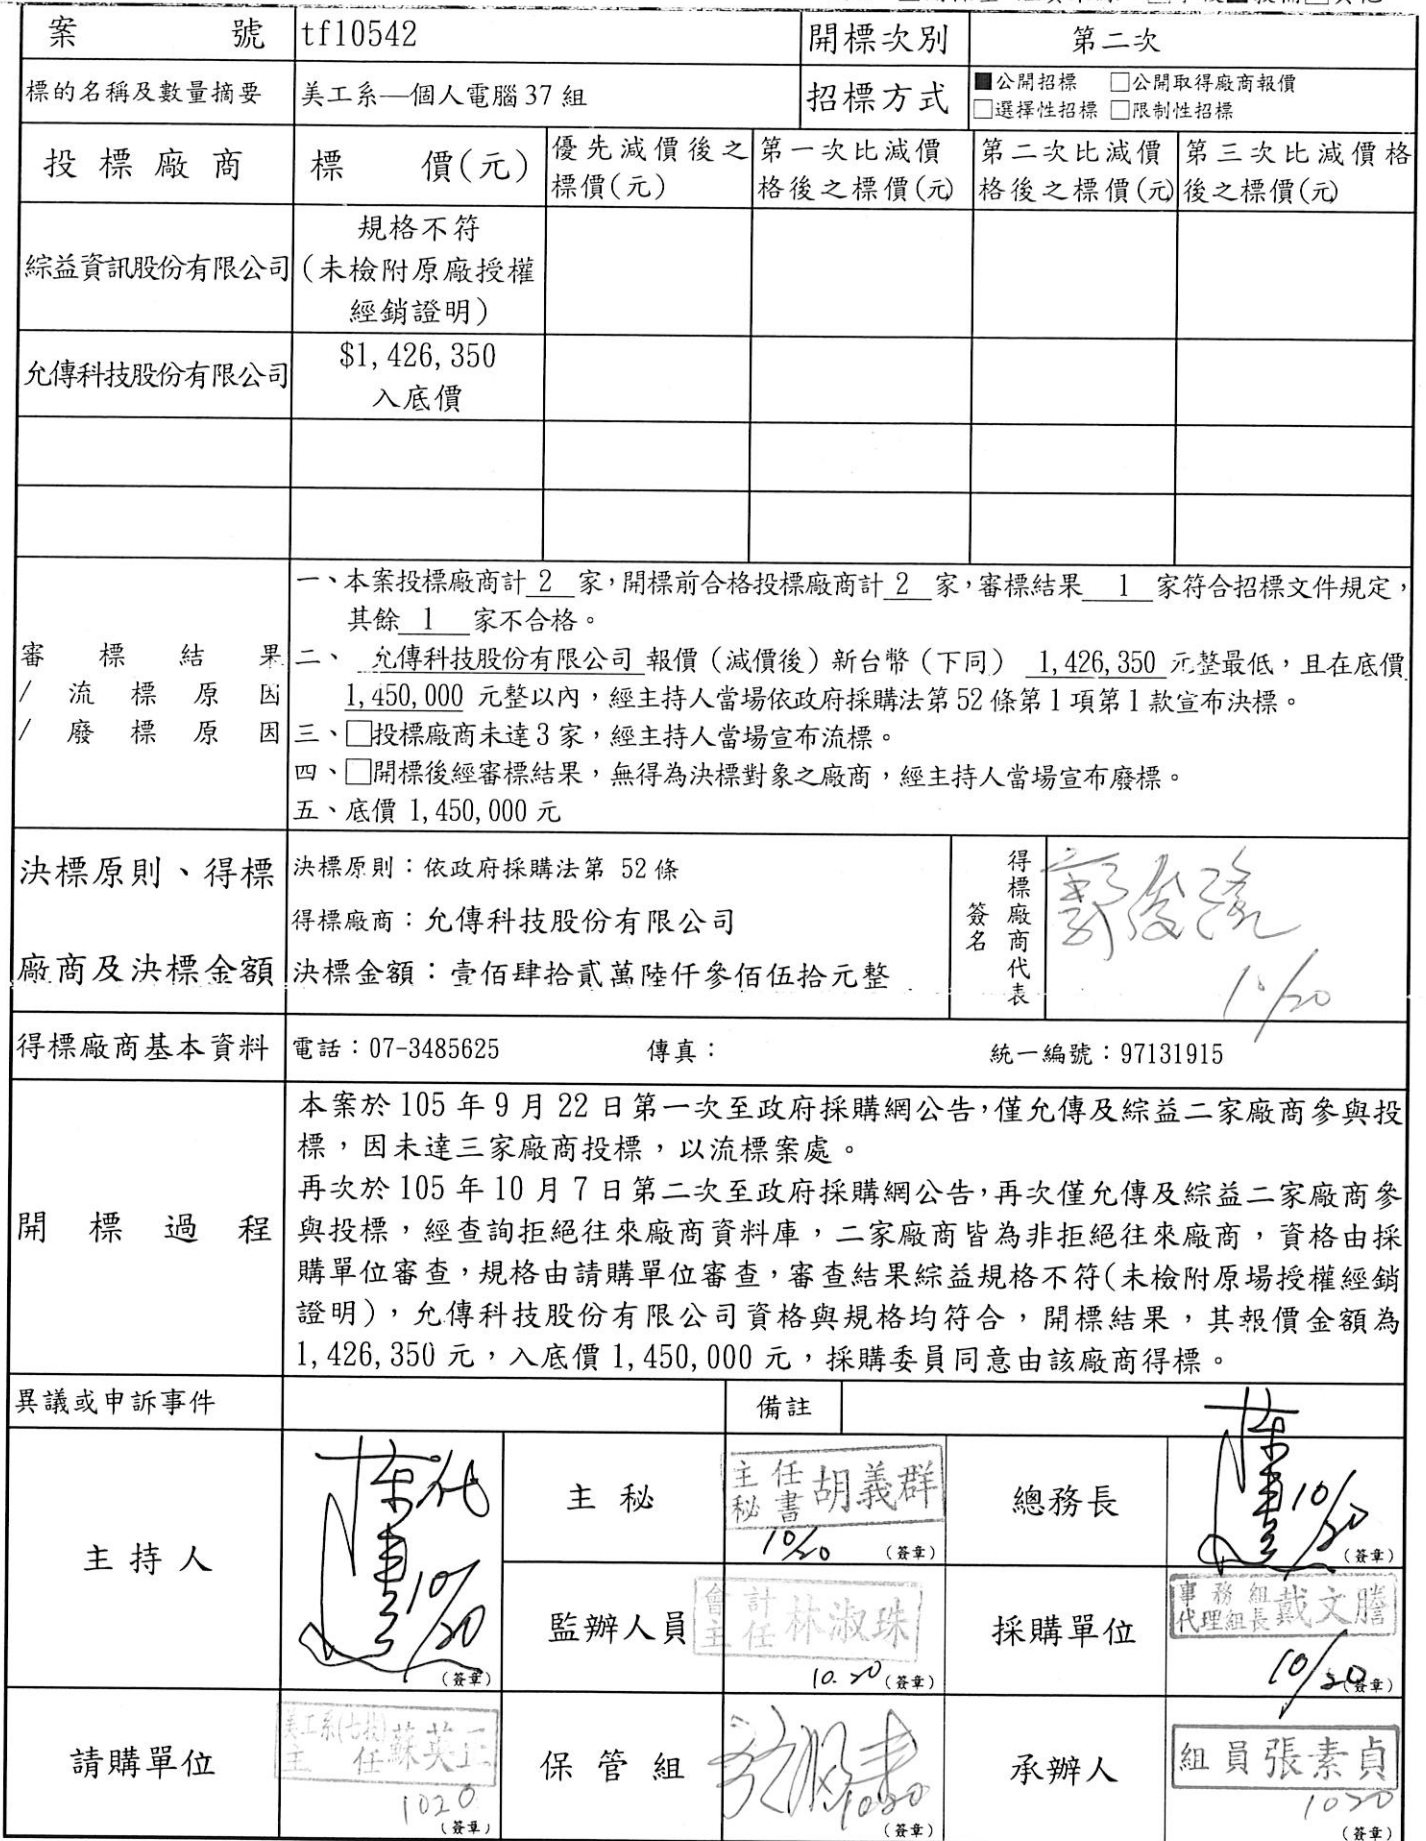 案　　號 tf10542 開標次別 第二次
標的名稱及數量摘要 美工系—個人電腦 37 組 招標方式 ■公開招標 □公開取得廠商報價
□選擇性招標 □限制性招標
投標廠商 標　價(元) 優先減價後之標價(元) 第一次比減價格後之標價(元) 第二次比減價格後之標價(元) 第三次比減價格後之標價(元)
綜益資訊股份有限公司 規格不符
(未檢附原廠授權
經銷證明)
允傳科技股份有限公司 $1,426,350
入底價
審標結果
/流標原因
/廢標原因
一、本案投標廠商計 2 家，開標前合格投標廠商計 2 家，審標結果 1 家符合招標文件規定，
其餘 1 家不合格。
二、 允傳科技股份有限公司 報價（減價後）新台幣（下同） 1,426,350 元整最低，且在底價
1,450,000 元整以內，經主持人當場依政府採購法第 52 條第 1 項第 1 款宣布決標。
三、□投標廠商未達 3 家，經主持人當場宣布流標。
四、□開標後經審標結果，無得為決標對象之廠商，經主持人當場宣布廢標。
五、底價 1,450,000 元
決標原則、得標
廠商及決標金額
決標原則：依政府採購法第 52 條
得標廠商：允傳科技股份有限公司
決標金額：壹佰肆拾貳萬陸仟參佰伍拾元整
得標廠商代表
簽名
10/20
得標廠商基本資料 電話：07-3485625 傳真： 統一編號：97131915
開標過程
本案於 105 年 9 月 22 日第一次至政府採購網公告，僅允傳及綜益二家廠商參與投
標，因未達三家廠商投標，以流標案處。
再次於 105 年 10 月 7 日第二次至政府採購網公告，再次僅允傳及綜益二家廠商參
與投標，經查詢拒絕往來廠商資料庫，二家廠商皆為非拒絕往來廠商，資格由採
購單位審查，規格由請購單位審查，審查結果綜益規格不符(未檢附原場授權經銷
證明)，允傳科技股份有限公司資格與規格均符合，開標結果，其報價金額為
1,426,350 元，入底價 1,450,000 元，採購委員同意由該廠商得標。
異議或申訴事件 備註
主持人 代 10/20 (簽章)
主秘 主任秘書 胡義群 10/20 (簽章)
總務長 10/20 (簽章)
監辦人員 會計主任 林淑珠 10.20 (簽章)
採購單位 事務組代理組長 戴文謄 10/20 (簽章)
請購單位 美工系(七技)主任 蘇英正 1020 (簽章)
保管組 1020 (簽章)
承辦人 組員 張素貞 1020 (簽章)